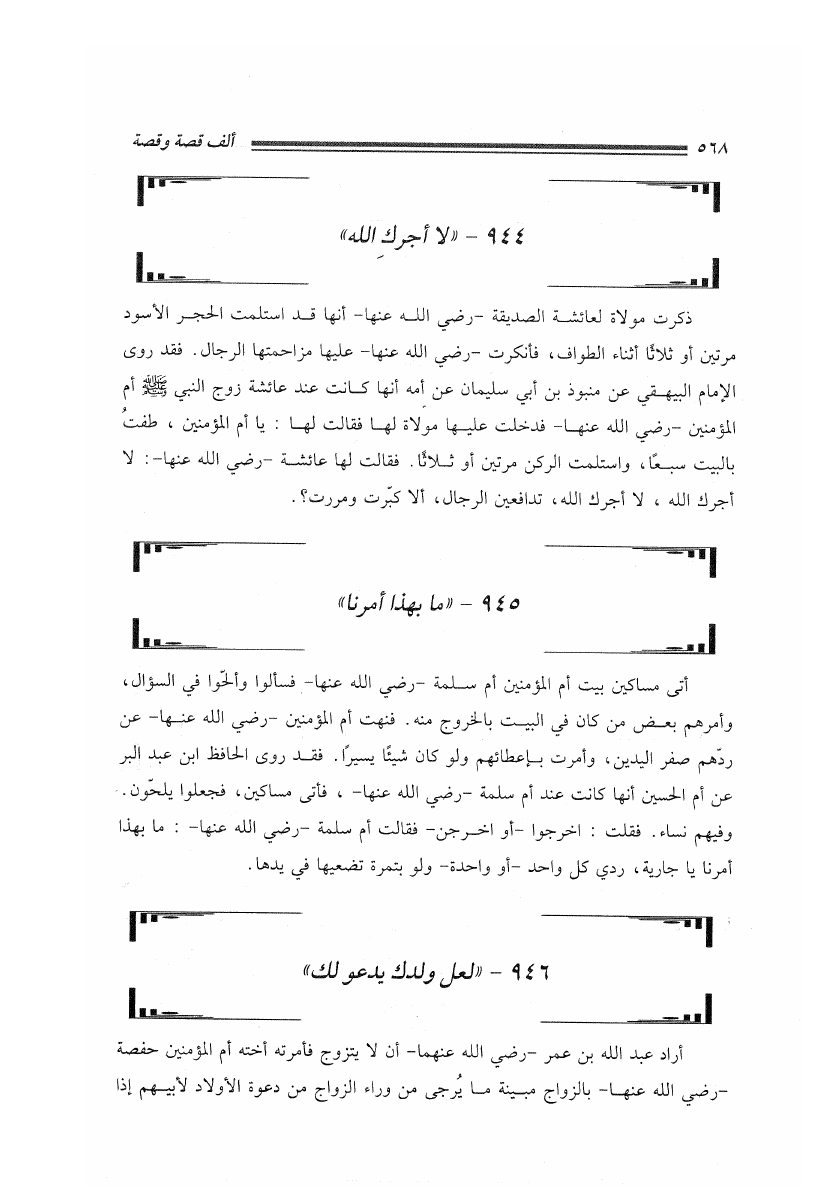 ٥٦٨ ألف قصة وقصة
٩٤٤ - «لا أجركِ الله»
ذكرت مولاة لعائشة الصديقة -رضي الله عنها- أنها قد استلمت الحجر الأسود
مرتين أو ثلاثًا أثناء الطواف، فأنكرت -رضي الله عنها- عليها مزاحمتها الرجال. فقد روى
الإمام البيهقي عن منبوذ بن أبي سليمان عن أمه أنها كانت عند عائشة زوج النبي ﷺ أم
المؤمنين -رضي الله عنها- فدخلت عليها مولاة لها فقالت لها : يا أم المؤمنين ، طفتُ
بالبيت سبعًا، واستلمت الركن مرتين أو ثلاثًا. فقالت لها عائشة -رضي الله عنها-: لا
أجرك الله ، لا أجرك الله، تدافعين الرجال، ألا كبّرت ومررت؟.
٩٤٥ - «ما بهذا أمرنا»
أتى مساكين بيت أم المؤمنين أم سلمة -رضي الله عنها- فسألوا وألحّوا في السؤال،
وأمرهم بعض من كان في البيت بالخروج منه. فنهت أم المؤمنين -رضي الله عنها- عن
ردّهم صفر اليدين، وأمرت بإعطائهم ولو كان شيئًا يسيرًا. فقد روى الحافظ ابن عبد البر
عن أم الحسين أنها كانت عند أم سلمة -رضي الله عنها- ، فأتى مساكين، فجعلوا يلحّون.
وفيهم نساء. فقلت : اخرجوا -أو اخرجن- فقالت أم سلمة -رضي الله عنها- : ما بهذا
أمرنا يا جارية، ردي كل واحد -أو واحدة- ولو بتمرة تضعيها في يدها.
٩٤٦ - «لعل ولدك يدعو لك»
أراد عبد الله بن عمر -رضي الله عنهما- أن لا يتزوج فأمرته أخته أم المؤمنين حفصة
-رضي الله عنها- بالزواج مبينة ما يُرجى من وراء الزواج من دعوة الأولاد لأبيهم إذا